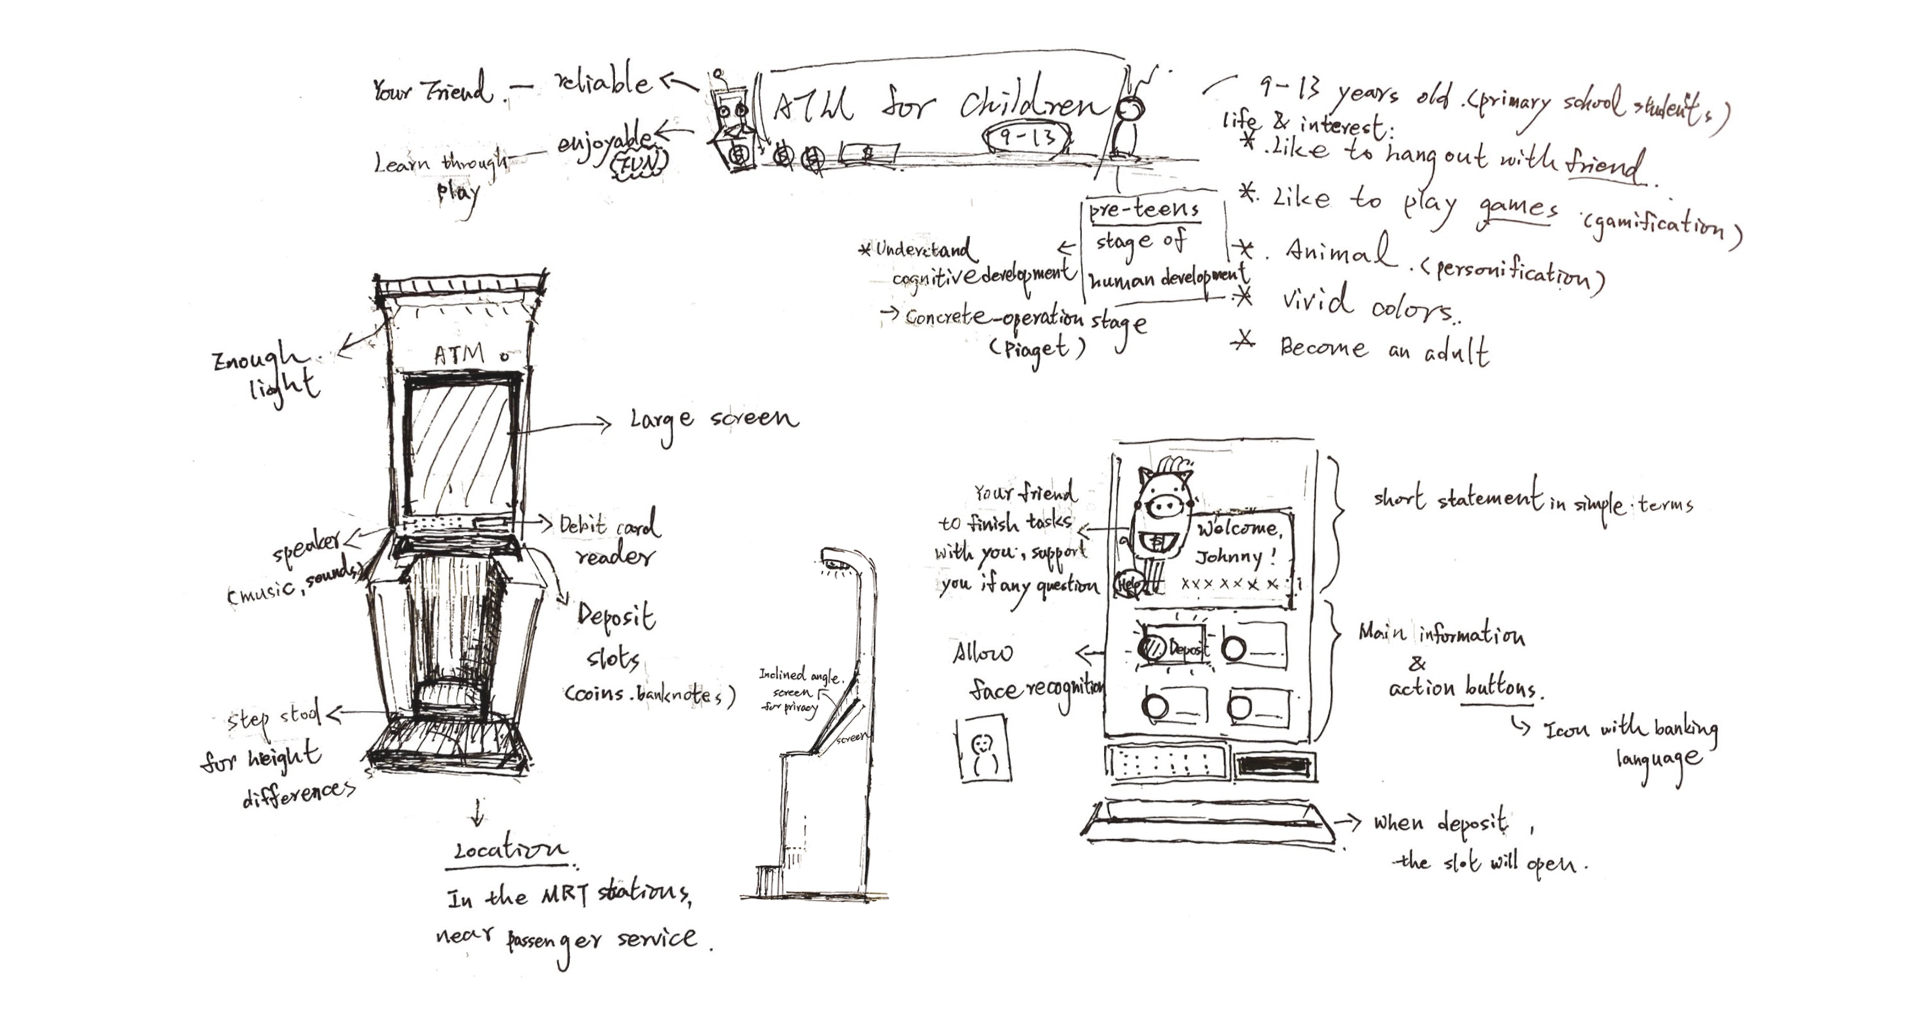 Your Friend. — reliable
Learn through play — enjoyable
(FUN)
ATM for children
9-13
$
9-13 years old. (primary school students)
life & interest:
*. Like to hang out with friend.
*. Like to play games (gamification)
*. Animal. (personification)
* Vivid colors.
* Become an adult
pre-teens
stage of
human development
* Understand
cognitive development
→ Concrete-operation stage
(Piaget)
Enough
light
ATM
Large screen
speaker
(music, sounds)
Debit card
reader
Deposit
slots
(coins. banknotes)
Step stool
for height
differences
Location.
In the MRT stations,
near passenger service.
Inclined angle.
screen
for privacy
screen
Your friend
to finish tasks
with you, support
you if any question
Welcome,
Johnny!
xxxxxxx
Help
Deposit
Allow
face recognition
short statement in simple terms
Main information
&
action buttons.
Icon with banking
language
→ When deposit,
the slot will open.